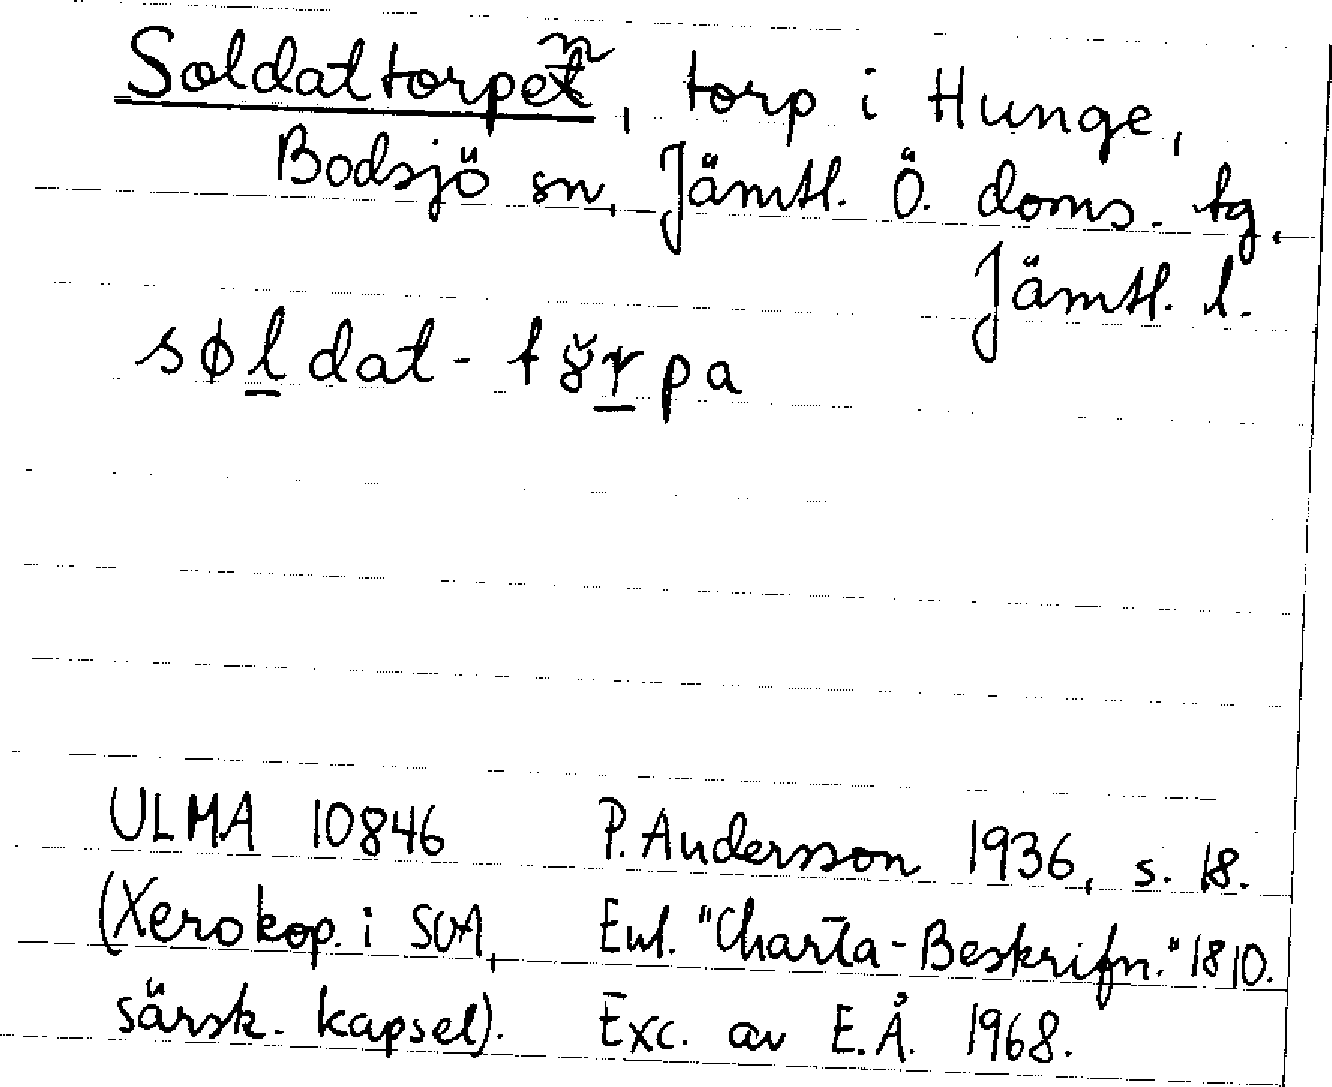 Soldattorpen, torp i Hunge,
Bodsjö sn, Jämtl. Ö. doms. tg.
Jämtl. l.
søldat-tɤ̆rpa
ULMA 10846 P. Andersson 1936, s. 18.
(Xerokop. i SOA, Enl. "Charta-Beskrifn." 1810.
särsk. kapsel). Exc. av E.Å. 1968.